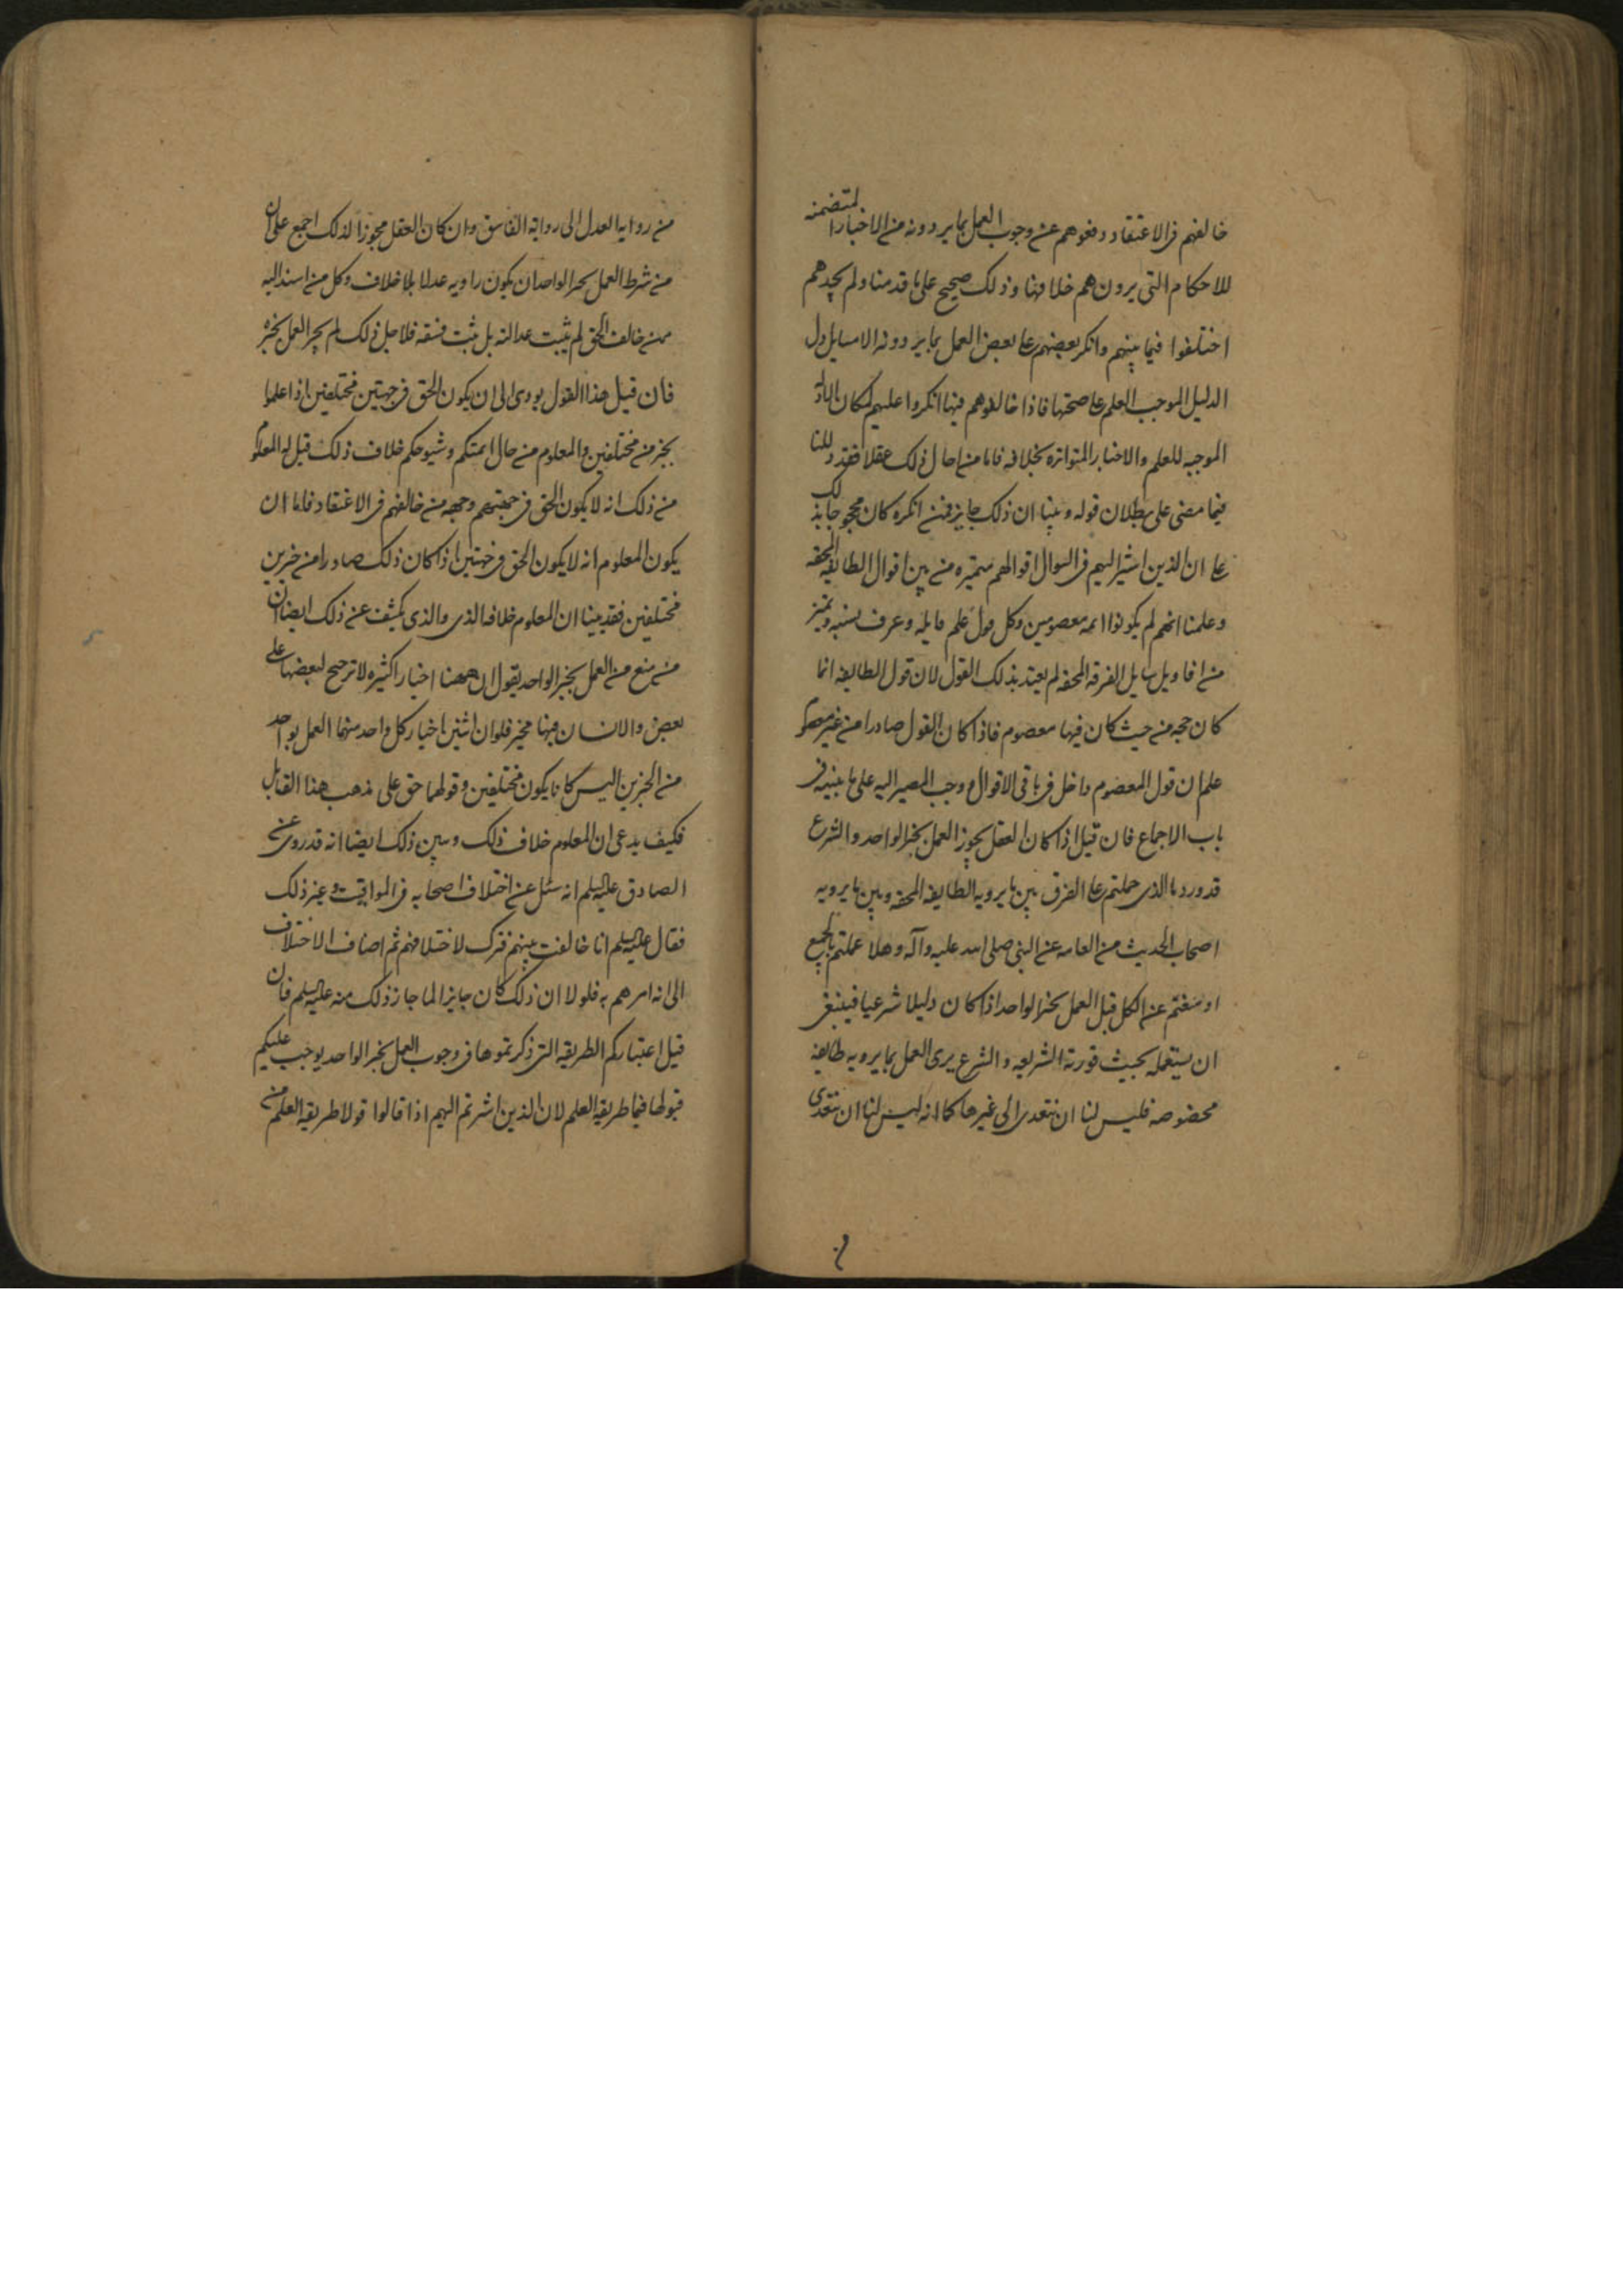 خالفهم فى الاعتقاد ودفعوهم عن وجوب العمل بما يردونه من الاخبار المتضمنه
للاحكام التى يرون هم خلافها وذلك صحيح على ما قدمنا ولم نجدهم
اختلفوا فيما بينهم وانكر بعضهم على بعض العمل بما يردونه الا مسايل دل
الدليل الموجب العلم على صحتها فاذا خالفوهم فيها انكروا عليهم لمكان الادلة
الموجبه للعلم والاخبار المتواتره بخلافه فاما من احال ذلك عقلا فقد دللنا
فيما مضى على بطلان قوله وبينا ان ذلك جايز فمن انكره كان محجوجا بذلك
على ان الذين اشير اليهم فى السوال اقوالهم متميزه من بين اقوال الطايفه المحقه
وعلمنا انهم لم يكونوا ائمه معصومين وكل قول علم قايله وعرف نسبه وتميز
من اقاويل ساير الفرقه المحقه لم يعتد بذلك القول لان قول الطايفه انما
كان حجه من حيث كان فيها معصوم فاذا كان القول صادرا من غير معصوم
علم ان قول المعصوم داخل فى باقى الاقوال ووجب المصير اليه على ما نبينه فى
باب الاجماع فان قيل اذا كان العقل يجوز العمل بخبر الواحد والشرع
قد ورد به ما الذى حملكم على الفرق بين ما يرويه الطايفه المحقه وبين ما يرويه
اصحاب الحديث من العامه عن النبى صلى الله عليه وآله وهلا عملتم بالجميع
او منعتم عن الكل قيل العمل بخبر الواحد اذا كان دليلا شرعيا فينبغى
ان يستعمله بحيث قررته الشريعه والشرع يرى العمل بما يرويه طايفه
مخصوصه فليس لنا ان نتعدى الى غيرها كما انه ليس لنا ان نتعدى
من روايه العدل الى رواية الفاسق وان كان العقل مجوزا لذلك اجمع على ان
من شرط العمل بخبر الواحد ان يكون راويه عدلا بلا خلاف وكل من اسند اليه
ممن خالف الحق لم يثبت عدالته بل ثبت فسقه فلاجل ذلك لم يجز العمل بخبره
فان قيل هذا القول يودى الى ان يكون الحق فى جهتين مختلفين اذا عملوا
بخبرين مختلفين والمعلوم من حال ائمتكم وشيوخكم خلاف ذلك قيل له المعلوم
من ذلك انه لا يكون الحق فى جهتهم وجهه من خالفهم فى الاعتقاد فاما ان
يكون المعلوم انه لا يكون الحق فى جهتين اذا كان ذلك صادرا من خبرين
مختلفين فقد بينا ان المعلوم خلافه الذى والذى يكشف عن ذلك ايضا ان
من منع من العمل بخبر الواحد يقول ان ههنا اخبارا كثيره لا ترجيح لبعضها على
بعض والانسان فيها مخير فلو ان اثنين اختار كل واحد منهما العمل بواحد
من الخبرين اليس كانا يكون مختلفين وقولهما حق على مذهب هذا القايل
فكيف يدعى ان المعلوم خلاف ذلك وبين ذلك ايضا انه قد روى عن
الصادق عليه السلم انه سئل عن اختلاف اصحابه فى المواقيت وغير ذلك
فقال عليه السلم انا خالفت بينهم فترك لاختلافهم ثم اضاف الاختلاف
الى انه امرهم به فلولا ان ذلك كان جايزا لما جاز ذلك منه عليه السلم فان
قيل اعتباركم الطريقه التى ذكرتموها فى وجوب العمل بخبر الواحد يوجب عليكم
قبولها فيما طريقه العلم لان الذين اشرتم اليهم اذا قالوا قولا طريقه العلم من